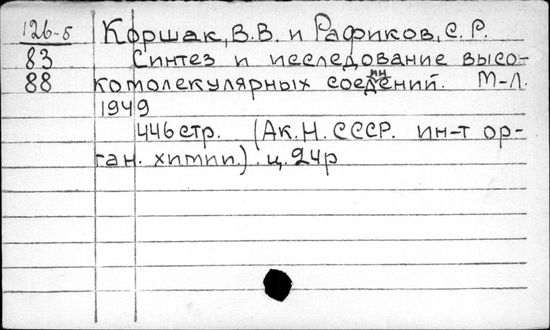 126-б Коршак, В.В. и Рафиков, С.Р.
83 Синтез и исследование высо-
88 комолекулярных соединений. М-Л.
1949
446стр. (Ак.Н. СССР. ин-т ор-
ган. химии.) ц. 24р